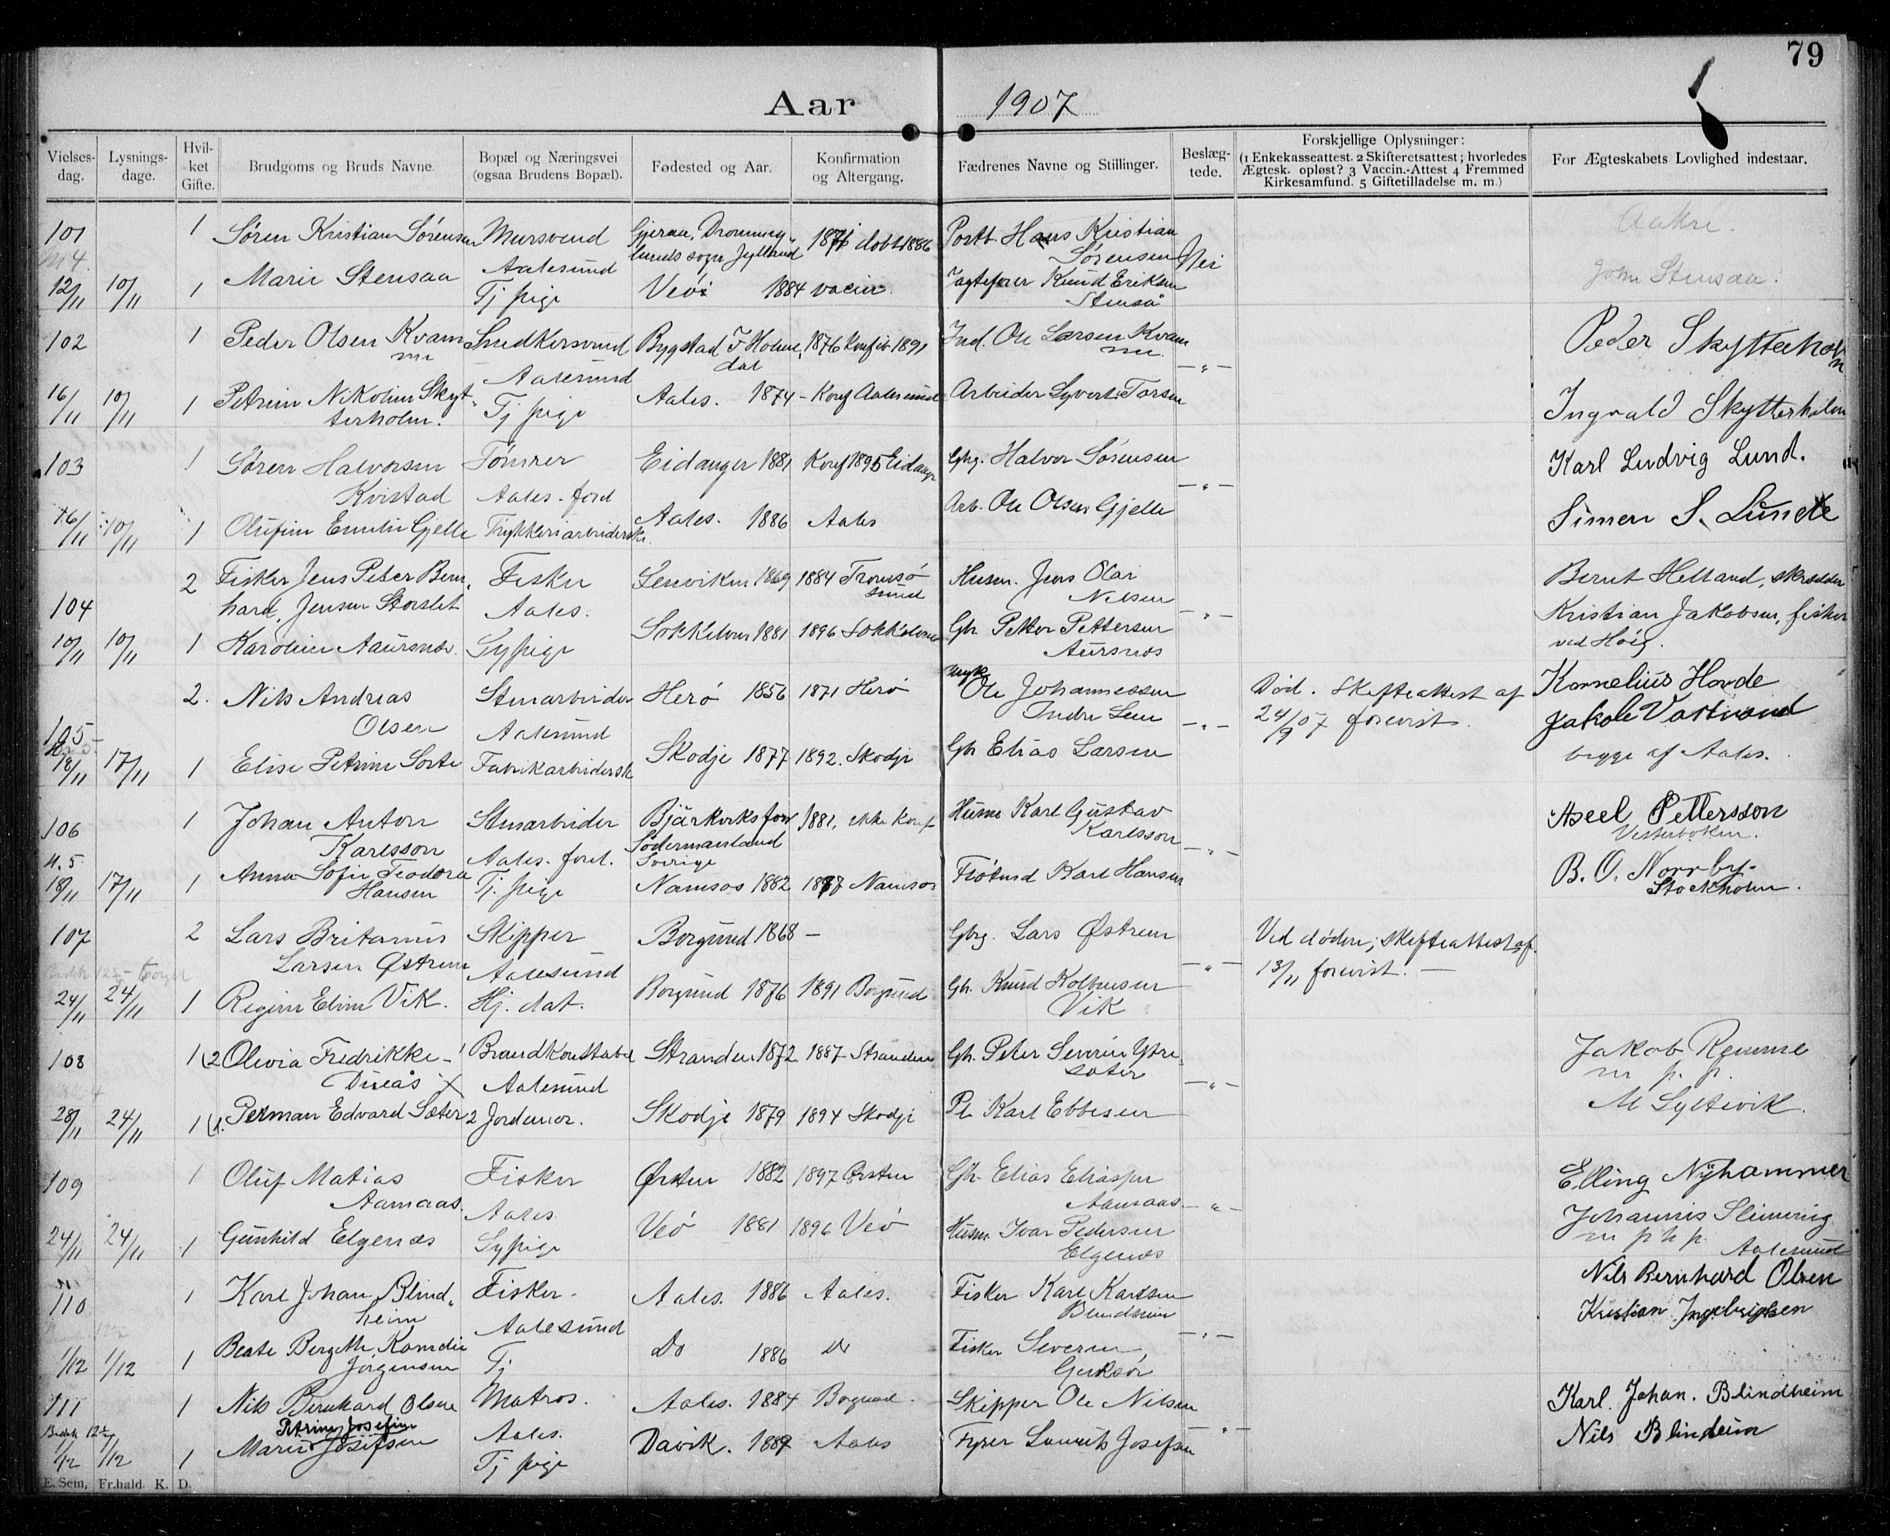 79
Aar 1907
Vielses-dag. Lysnings-dage. Hvil-ket Gifte. Brudgoms og Bruds Navne. Bopæl og Næringsvei (ogsaa Brudens Bopæl). Fødested og Aar. Konfirmation og Altergang. Fædrenes Navne og Stillinger. Beslæg-tede. Forskjellige Oplysninger: (1 Enkekasseattest. 2 Skifteretsattest; hvorledes Ægtesk. opløst? 3 Vaccin.-Attest 4 Fremmed Kirkesamfund. 5 Giftetilladelse m. m.) For Ægteskabets Lovlighed indestaar.
101 1 Søren Kristian Sørensen Mursvend Gjeraa, Dronning- 1871 døbt 1886 Postb. Hans Kristian Aakre.
Aalesund lunds sogn Jylland Sørensen Nei
12/11 10/11 1 Marie Stensaa Tj pige Veø 1884 vaccin. Jægtefører Knud Eriksen John Stensaa.
Stenså
102 1 Peder Olsen Kvam Snedkersvend Bygstad I Holme, 1876 konf ib 1891 Ind. Ole Larsen Kvam Peder Skytterholm
me Aalesund dal me -"-
16/11 10/11 1 Petrine Nikoline Skyt- Tj pige Aales. 1874 - Konf Aalesund Arbeider Syvert Torsen Ingvald Skytterholm
terholm.
103 1 Søren Halvorsen Tømrer Eidanger 1881 Konf 1895 Eidanger Gbrg. Halvor Sørensen Karl Ludvig Lund.
Kvistad Aales. ford -"-
16/11 10/11 1 Olufine Emilie Gjelle Trykkeriarbeiderske Aales. 1886 Aales Arb. Ole Olsen Gjelle Simen S. Lunde
2 Fisker Jens Peter Bern- Fisker Lenviken 1869 1884 Tromsø Husm. Jens Olai Bernt Helland, skrædder
104 hard, Jensen Storslet Aales. sund Nilsen -"- Kristian Jakobsen, fisker
10/11 10/11 1 Karoline Aaursnæs. Sypige Sokkelven 1881 1896 Sokkelven Gbr Petter Pettersen ved Høig.
Aursnæs
2. Nils Andreas Stenarbeider Herø 1856 1871 Herø Ole Johannessen Død. Skifteattest af Kornelius Hovde
105 Olsen Aalesund Indre Lem -"- 24/9 07 forevist. Jakob Vatvaid
18/11 17/11 1 Elise Petrine Sorte Fabrikarbeidersk Skodje 1877 1892. Skodje Gbr Elias Larsen begge af Aales.
106 1 Johan Anton Stenarbeider Björkviks förs 1881, ikke konf Husm Karl Gustav Axel Pettersson
Karlsson Aales. ford. Södermanland Karlsson -"- Vesterboken.
4.5 Sverige
18/11 17/11 1 Anna Sofie Teodora Tj. pige Namsos 1882 1897 Namsos Fløtmd Karl Hansen B. O. Norrby-
Hansen Stockholm.
107 2 Lars Britanus Skipper Borgund 1868 - Gbrg. Lars Østrem Ved døden; skifteattest af
Larsen Østrem Aalesund -"- 13/11 forevist. -
24/11 24/11 1 Regine Eline Vik. Hj. dat. Borgund 1876 1891 Borgund Gbr. Knud Kolbensen
Vik
108 1 (2 Olivia Fredrikke - 1 Brandkonstabel Stranden 1872 1887 Stranden Gbr. Peter Severin Ytre- Jakob Remme
Dueås Aalesund sæter -"- m. p. p.
28/11 24/11 1 (1. Perman Edvard Sæter 2 Jordmor. Skodje 1879 1894 Skodje Pl Karl Ebbesen M Syltevik.
109 1 Oluf Matias Fisker Ørsten 1882 1897 Ørsten Gbr. Elias Eliassen Elling Nÿhammer
Aamaas. Aales. Aamaas. -"- Johannes Slinning
24/11 24/11 1 Gunhild Elgenæs Sypige Veø 1881 1896 Veø Husm. Ivar Pedersen m p h p. Aalesund
Elgenæs
110 1 Karl Johan Blind- Fisker- Aales. 1886 Aales. Fisker Karl Karlsen Nils Bernhard Olsen
heim Aalesund Blindheim -"- Kristian Ingebrigtsen
1/12 1/12 1 Beate Bergitte, Kornelie Tj Do 1886 Do Fisker Severin,
Jørgensen Gjerksør
111 1 Nils Bernhard Olsen Matros. Aales. 1884 Borgund. Skipper Ole Nilsen Karl. Johan. Blindheim
Petrine Josefine Aales. -"-
1/12 1/12 1 Marie Josefsen Tj pige Davik. 1889 Aales Fyrer Laurits Josefsen Nils Blindeim
E. Sem, Fr.hald. K. D.